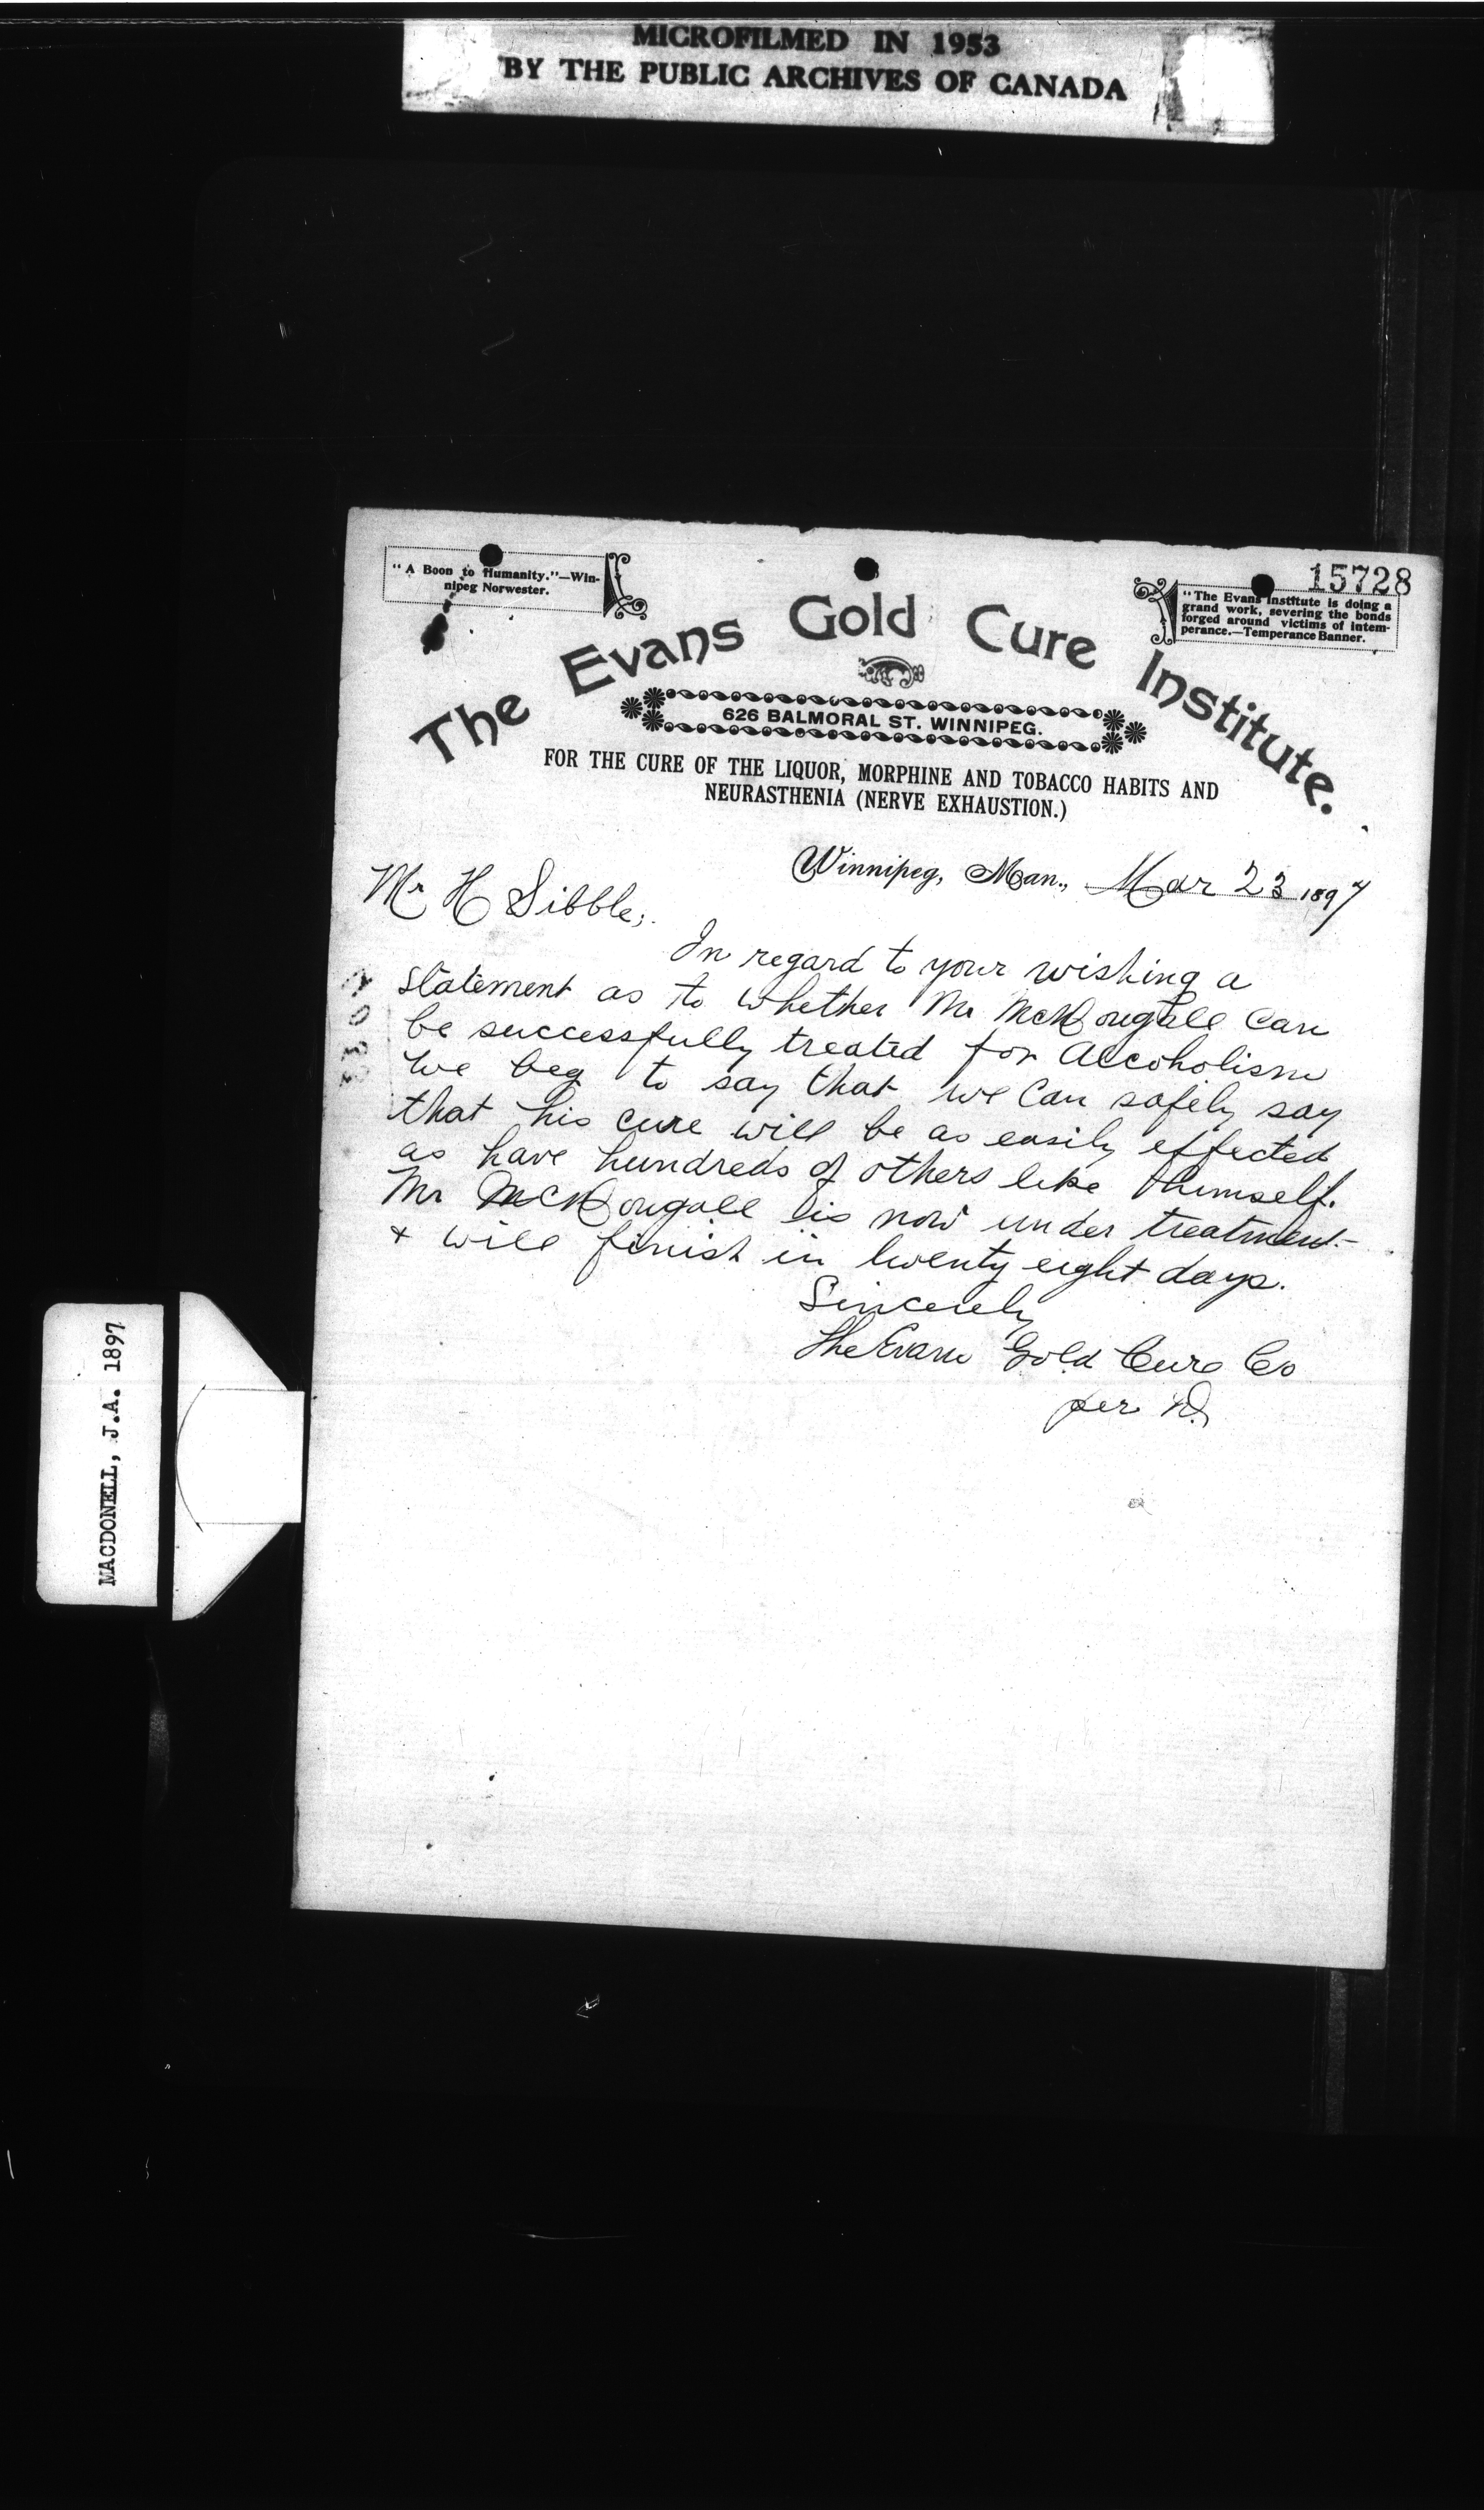 MICROFILMED IN 1953
BY THE PUBLIC ARCHIVES OF CANADA
15728
"A Boon to Humanity."—Win-
nipeg Norwester.
"The Evans Institute is doing a
grand work, severing the bonds
forged around victims of intem-
perance.—Temperance Banner.
The Evans Gold Cure Institute.
626 BALMORAL ST. WINNIPEG.
FOR THE CURE OF THE LIQUOR, MORPHINE AND TOBACCO HABITS AND
NEURASTHENIA (NERVE EXHAUSTION.)
Winnipeg, Man., Mar 23 1897
Mr H Sibble,
In regard to your wishing a
statement as to whether Mr McDougall can
be successfully treated for Alcoholism
we beg to say that we can safely say
that his cure will be as easily effected
as have hundreds of others like himself.
Mr McDougall is now under treatment
& will finish in twenty eight days.
Sincerely
The Evans Gold Cure Co
per
MACDONELL, J.A. 1897